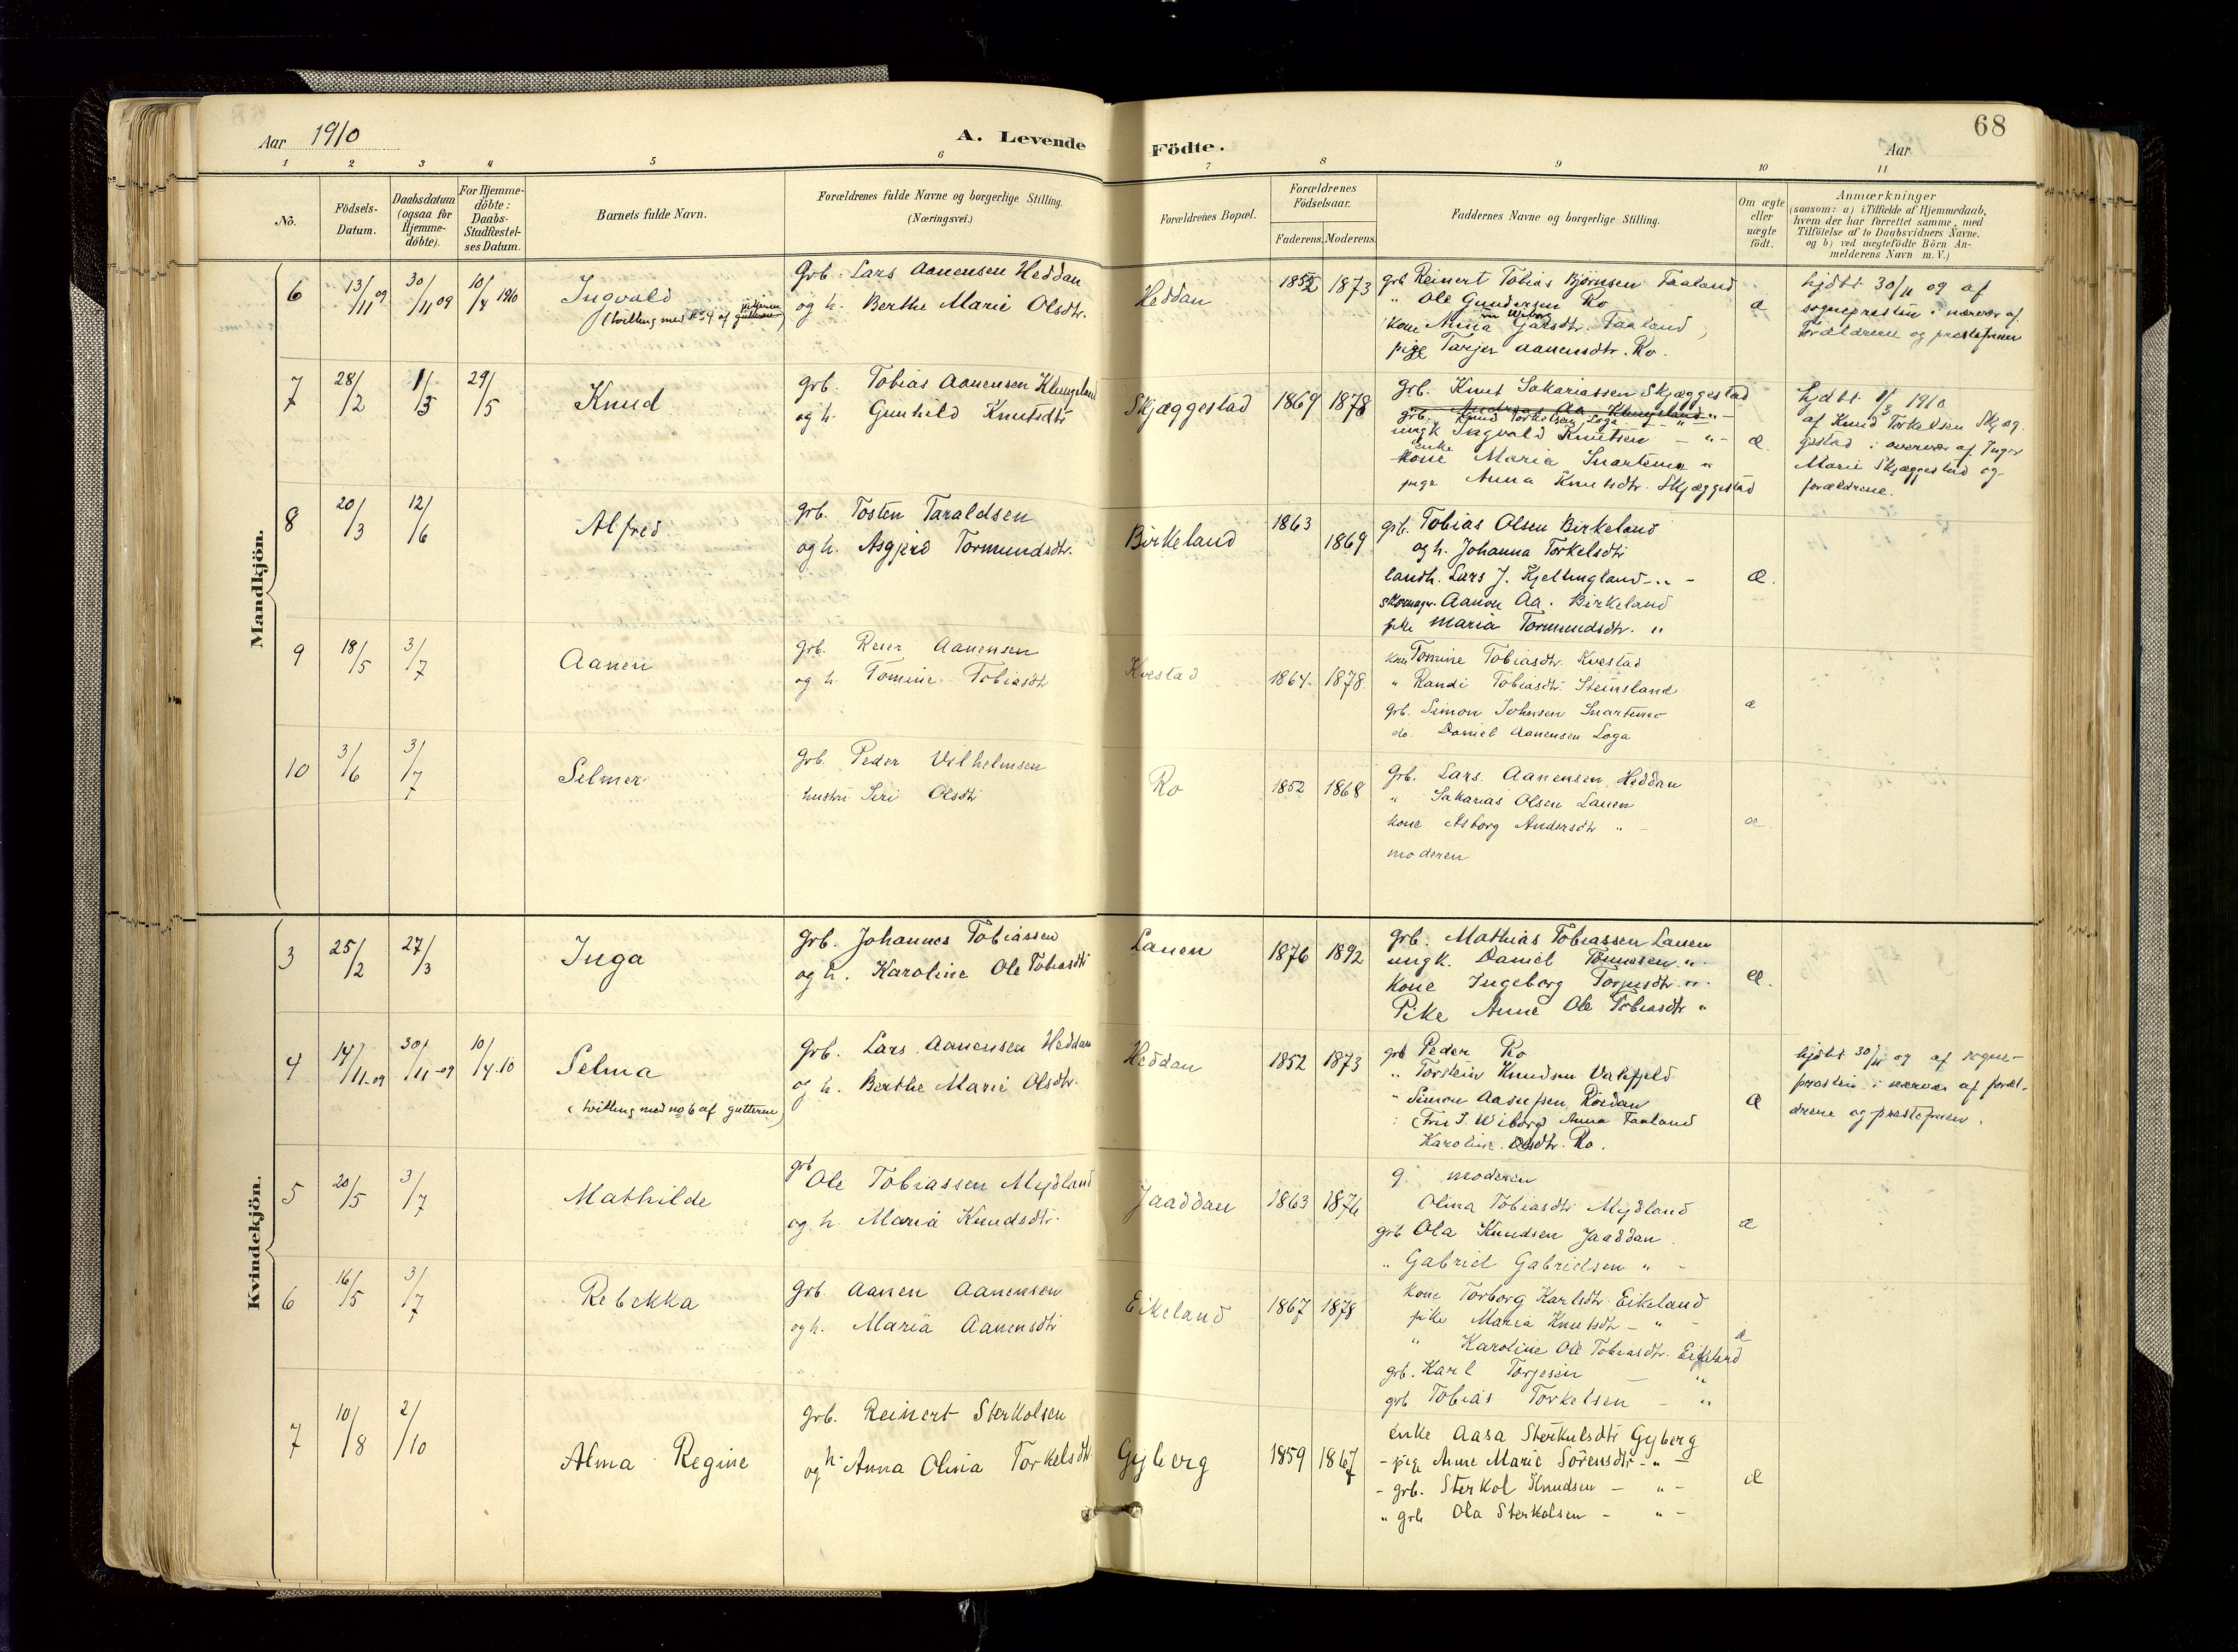 68
Aar 1910
A. Levende
Födte.
Aar
1 2 3 4 5 6 7 8 9 10 11
No.
Födsels-
Datum.
Daabsdatum
(ogsaa for
Hjemme-
döbte).
For Hjemme-
döbte:
Daabs-
Stadfæstel-
ses Datum.
Barnets fulde Navn.
Forældrenes fulde Navne og borgerlige Stilling.
(Næringsvei.)
Forældrenes Bopæl.
Forældrenes
Födselsaar.
Faderens. Moderens.
Faddernes Navne og borgerlige Stilling.
Om ægte
eller
uægte
födt.
Anmærkninger
(saasom: a) i Tilfælde af Hjemmedaab,
hvem der har forrettet samme, med
Tilföielse af to Daabsvidners Navne,
og b) ved uægtefödte Börn An-
melderens Navn m. V.)
Mandkjön.
6 13/11 09 30/11 09 10/4 1910
Ingvald
(tvilling med No 4 af pikerne)
Grb. Lars Aanensen Heddan
og h. Berthe Marie Olsdtr.
Heddan
1852 1873
grb Reinert Tobias Bjørnsen Faaland
" Ole Gundersen Ro
kone Anna Gjatsdtr. Faaland
pige Tarjer Aanensdtr. Ro.
æ
hjdbt 30/11 09 af
sognepresten i nærvær af
forældrene og prestefruen
7 28/2 1/3 29/5
Knud
grb. Tobias Aanensen Klungeland
og h. Gunhild Knutsdtr
Skjæggestad
1869 1878
grb. Knut Sakariassen Skjæggestad
grb. Andreas Aa. Klungeland " -
grb. Knud Torkelsen Loga - " -
ungk Ingvald Knutsen - " -
enke
kone Maria Snartemo "
pige Anna Knutsdtr. Skjæggestad
æ.
hjdbt. 1/3 1910
af Knud Torkelsen Skjæg-
gestad i overvær af Inger
Marie Skjæggestad og
forældrene.
8 20/3 12/6
Alfred
grb. Tosten Taraldsen
og h. Asgjerd Tormundsdtr.
Birkeland
1863
1869
grb. Tobias Olsen Birkeland
og h. Johanna Torkelsdtr
landh. Lars J. Kjellingland - " -
skomagr. Aanon Aa. Birkeland
pike Maria Tormundsdtr. "
æ.
9 18/5 3/7
Aanen
grb. Reier Aanensen
og h. Tomine Tobiasdtr
Kvestad
1864. 1878.
kone Tomine Tobiasdtr. Kvestad
" Randi Tobiasdtr. Steinsland
grb. Simon Johnsen Snartemo
do. Daniel Aanensen Loga
æ
10 3/6 3/7
Selmer
Grb. Peder Vilhelmsen
hustru Siri Olsdtr
Ro
1852 1868
Grb. Lars Aanensen Heddan
" Sakarias Olsen Lauen
kone Asborg Andersdtr " -
moderen
æ.
Kvindekjön.
3 25/2 27/3
Inga
grb. Johannes Tobiassen
og h. Karoline Ole Tobiasdtr
Lauen
1876 1892
grb. Mathias Tobiassen Lauen
ungk. Daniel Tønnesen "
kone Ingeborg Torjusdtr. "
Pike Anne Ole Tobiasdtr "
æ.
4 14/11-09 30/11-09 10/4.10
Selma
(tvilling med no 6 af gutterne)
Grb. Lars Aanensen Heddan
og h. Berthe Marie Olsdtr.
Heddan
1852 1873
grb Peder Ro
" Torstein Knudsen Valefjeld
" Simon Aasulfsen Røidan
(Fru I. Wiborg Anna Faaland
Karoline Olsdtr. Ro.
æ
hjdbt 30/11 09 af sogne-
presten i nærvær af foræl-
drene og prestefruen.
5 20/5 3/7
Mathilde
grb Ole Tobiassen Mydland
og h. Maria Knudsdtr.
Jaaddan
1863 1876
g. moderen
Olina Tobiasdtr Mydland
grb Ola Knudsen Jaaddan.
" Gabriel Gabrielsen " -
æ
6 16/5 3/7
Rebekka
grb. Aanen Aanensen
og h. Maria Aanensdtr
Eikeland
1867 1878
kone Torborg Karlsdtr. Eikeland
pike Maria Knutsdtr - " -
" Karoline Ole Tobiasdtr. Eikeland
grb. Karl Torjesen "
grb Tobias Torkelsen - "
æ
7 10/8 2/10
Alma Regine
grb. Reinert Sterkolsen
og h. Anna Olina Torkelsdtr
Gyberg
1859 1867
enke Aasa Sterkulsdtr Gyberg
- pig Anne Marie Sörensdtr - " -
- grb. Sterkol Knudsen - " -
" grb Ola Sterkolsen - " -
æ